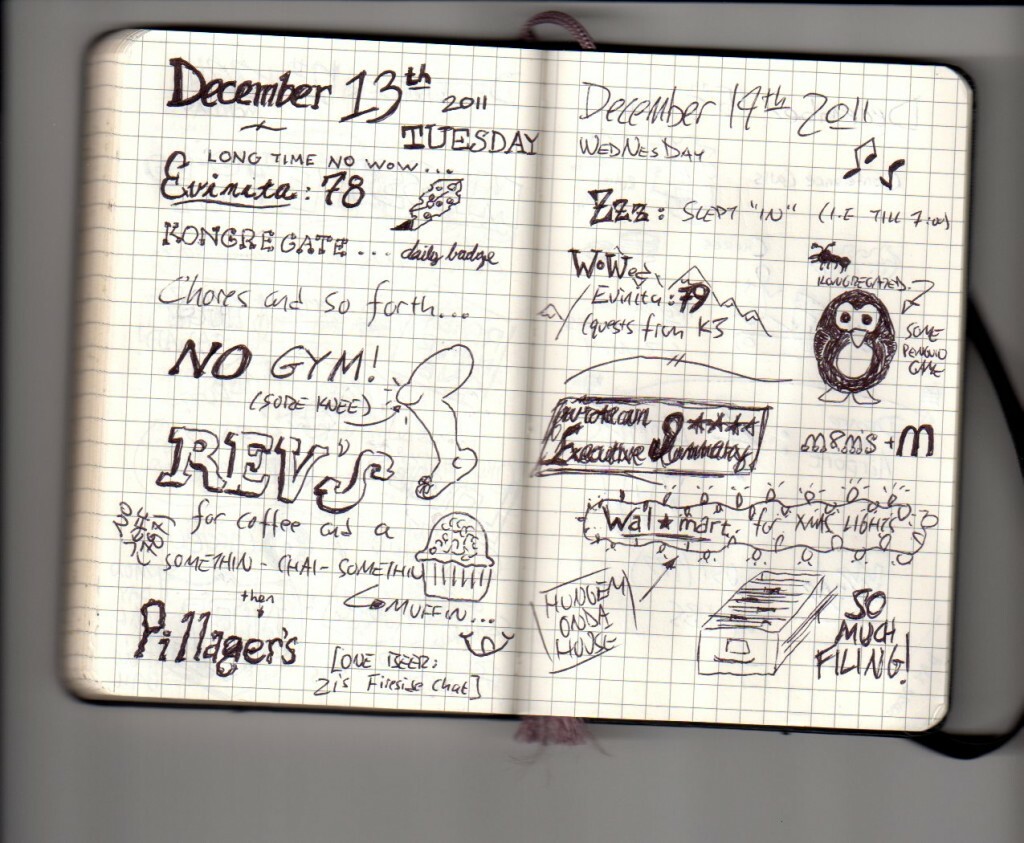 December 13th 2011
TUESDAY
LONG TIME NO WOW...
Evinita: 78
KONGREGATE... daily badge
Chores and so forth...
NO GYM!
(SORE KNEE)
REV'S
for coffee and a
SOMETHIN-CHAI-SOMETHIN
MUFFIN...
then
Pillager's
[ONE BEER:
Zi's Fireside Chat]
December 14th 2011
WEDNESDAY
Zzz: SLEPT "IN" (I.E TILL 7:00)
WOWed
Evinita: 79
(quests from K3
KONGREGATED?
SOME
PENGUIN
GAME
wrote our own
Executive Summary
m&m's + m
Wal★mart for XMAS LIGHTS
HUNGEM
ONDA
HOUSE
SO
MUCH
FILING!